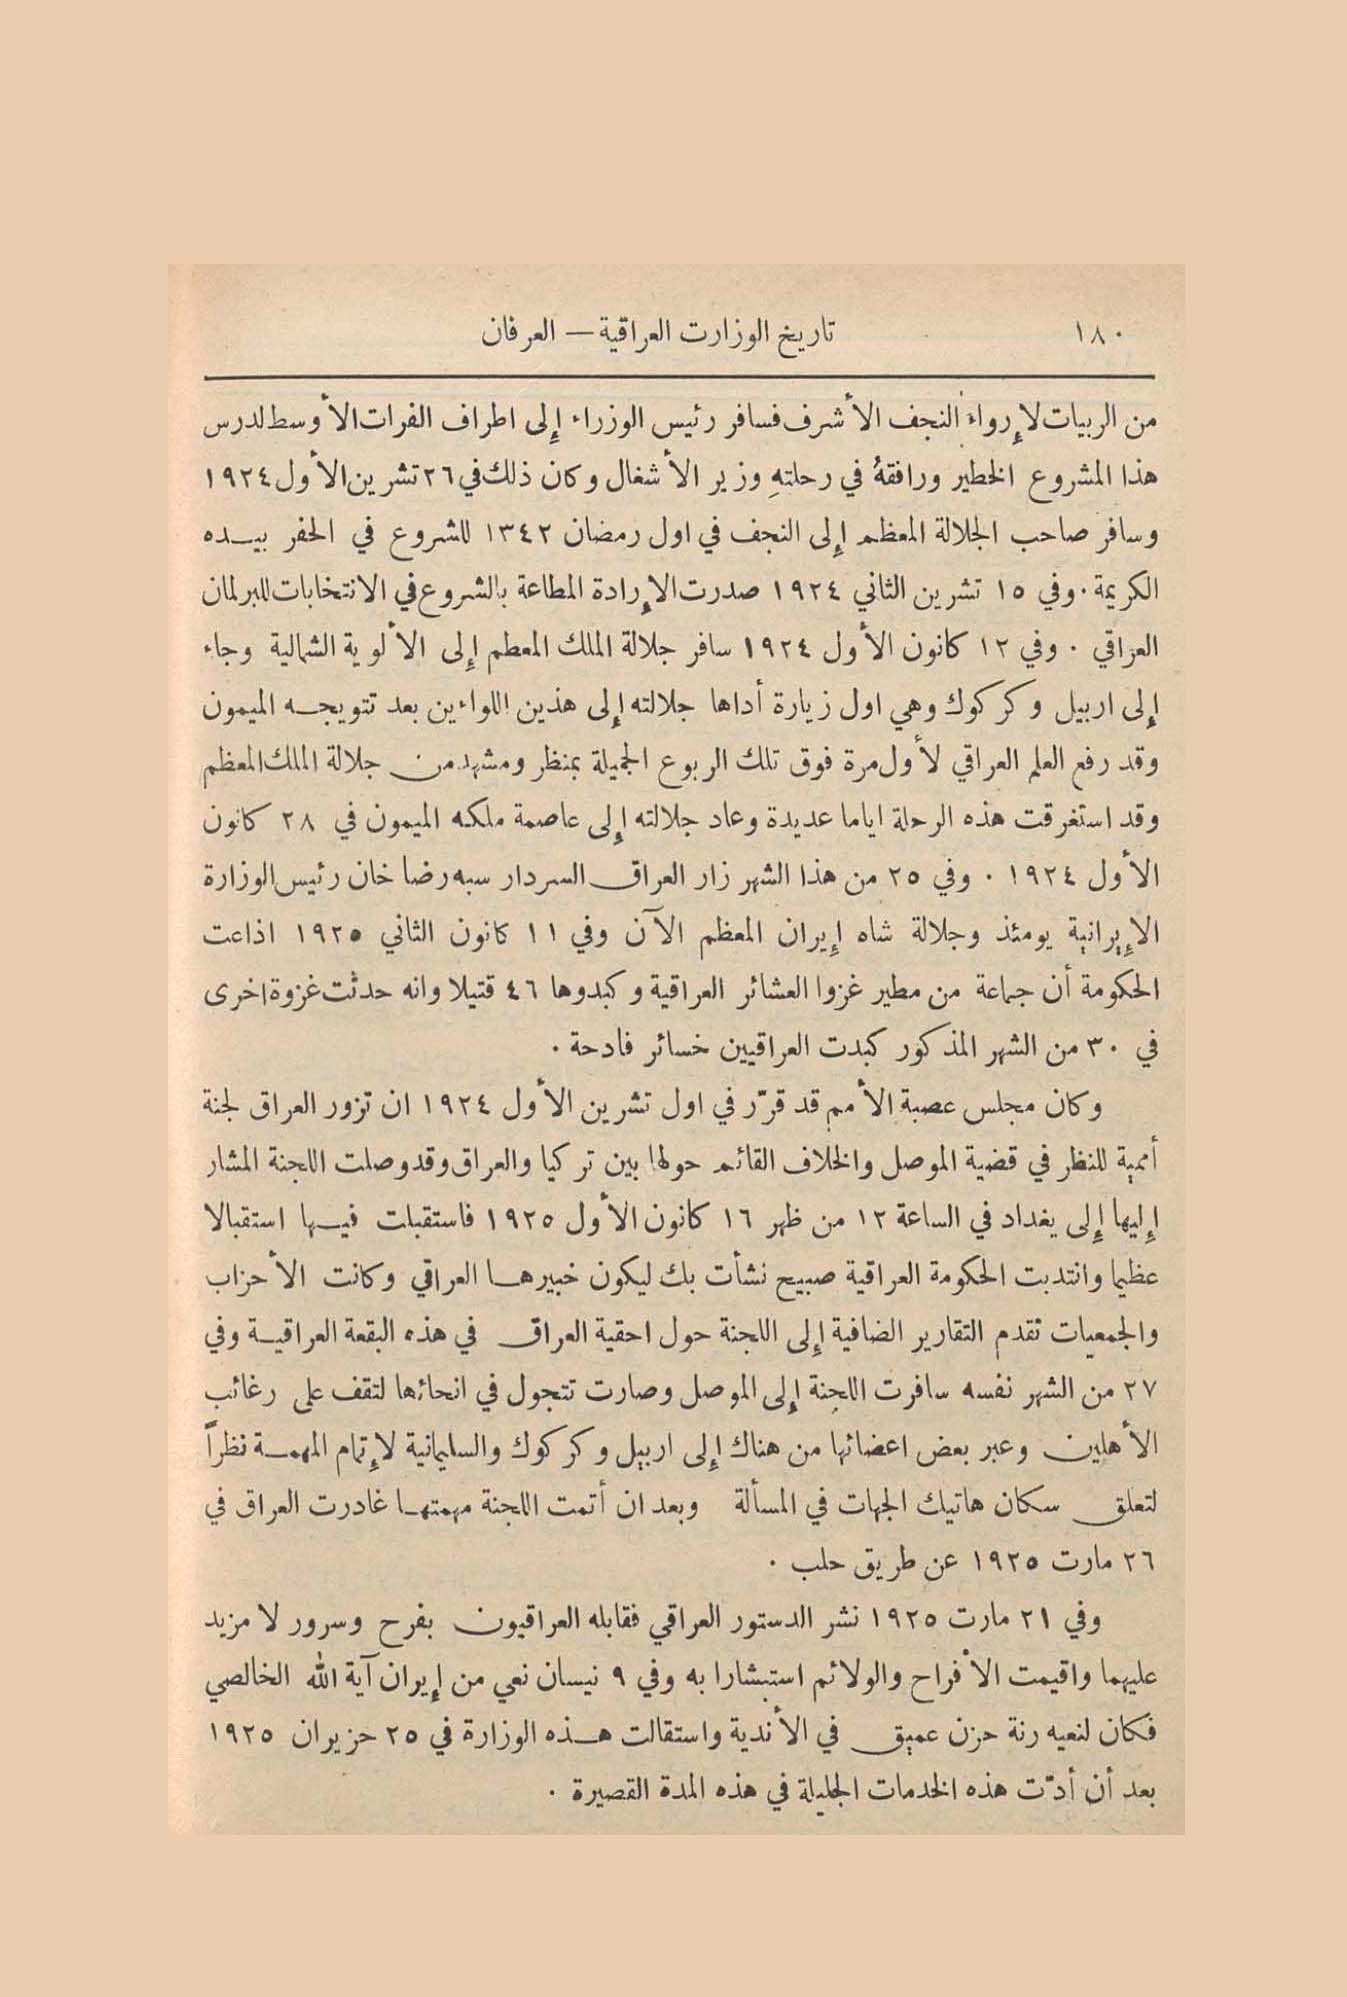 ١٨٠
تاريخ الوزارت العراقية — العرفان
من الربيات لإرواء النجف الأشرف فسافر رئيس الوزراء إلى اطراف الفرات الأوسط لدرس
هذا المشروع الخطير ورافقهُ في رحلتهِ وزير الأشغال وكان ذلك في ٢٦ تشرين الأول ١٩٢٤
وسافر صاحب الجلالة المعظم إلى النجف في اول رمضان ١٣٤٢ للشروع في الحفر بيده
الكريمة . وفي ١٥ تشرين الثاني ١٩٢٤ صدرت الإرادة المطاعة بالشروع في الانتخابات للبرلمان
العراقي . وفي ١٢ كانون الأول ١٩٢٤ سافر جلالة الملك المعظم إلى الألوية الشمالية وجاء
إلى اربيل وكركوك وهي اول زيارة أداها جلالته إلى هذين اللواءين بعد تتويجه الميمون
وقد رفع العلم العراقي لأول مرة فوق تلك الربوع الجميلة بمنظر ومشهد من جلالة الملك المعظم
وقد استغرقت هذه الرحلة اياما عديدة وعاد جلالته إلى عاصمة ملكه الميمون في ٢٨ كانون
الأول ١٩٢٤ . وفي ٢٥ من هذا الشهر زار العراق السردار سبه رضا خان رئيس الوزارة
الإيرانية يومئذ وجلالة شاه إيران المعظم الآن وفي ١١ كانون الثاني ١٩٢٥ اذاعت
الحكومة أن جماعة من مطير غزوا العشائر العراقية وكبدوها ٤٦ قتيلا وانه حدثت غزوة اخرى
في ٣٠ من الشهر المذكور كبدت العراقيين خسائر فادحة .
وكان مجلس عصبة الأمم قد قرّر في اول تشرين الأول ١٩٢٤ ان تزور العراق لجنة
أممية للنظر في قضية الموصل والخلاف القائم حولها بين تركيا والعراق وقد وصلت اللجنة المشار
إليها إلى بغداد في الساعة ١٢ من ظهر ١٦ كانون الأول ١٩٢٥ فاستقبلت فيها استقبالا
عظيما وانتدبت الحكومة العراقية صبيح نشأت بك ليكون خبيرها العراقي وكانت الأحزاب
والجمعيات تقدم التقارير الضافية إلى اللجنة حول احقية العراق في هذه البقعة العراقية وفي
٢٧ من الشهر نفسه سافرت اللجنة إلى الموصل وصارت تتجول في انحائها لتقف على رغائب
الأهلين وعبر بعض اعضائها من هناك إلى اربيل وكركوك والسليمانية لإتمام المهمة نظراً
لتعلق سكان هاتيك الجهات في المسألة وبعد ان أتمت اللجنة مهمتها غادرت العراق في
٢٦ مارت ١٩٢٥ عن طريق حلب .
وفي ٢١ مارت ١٩٢٥ نشر الدستور العراقي فقابله العراقيون بفرح وسرور لا مزيد
عليهما واقيمت الأفراح والولائم استبشارا به وفي ٩ نيسان نعي من إيران آية الله الخالصي
فكان لنعيه رنة حزن عميق في الأندية واستقالت هذه الوزارة في ٢٥ حزيران ١٩٢٥
بعد أن أدّت هذه الخدمات الجليلة في هذه المدة القصيرة .